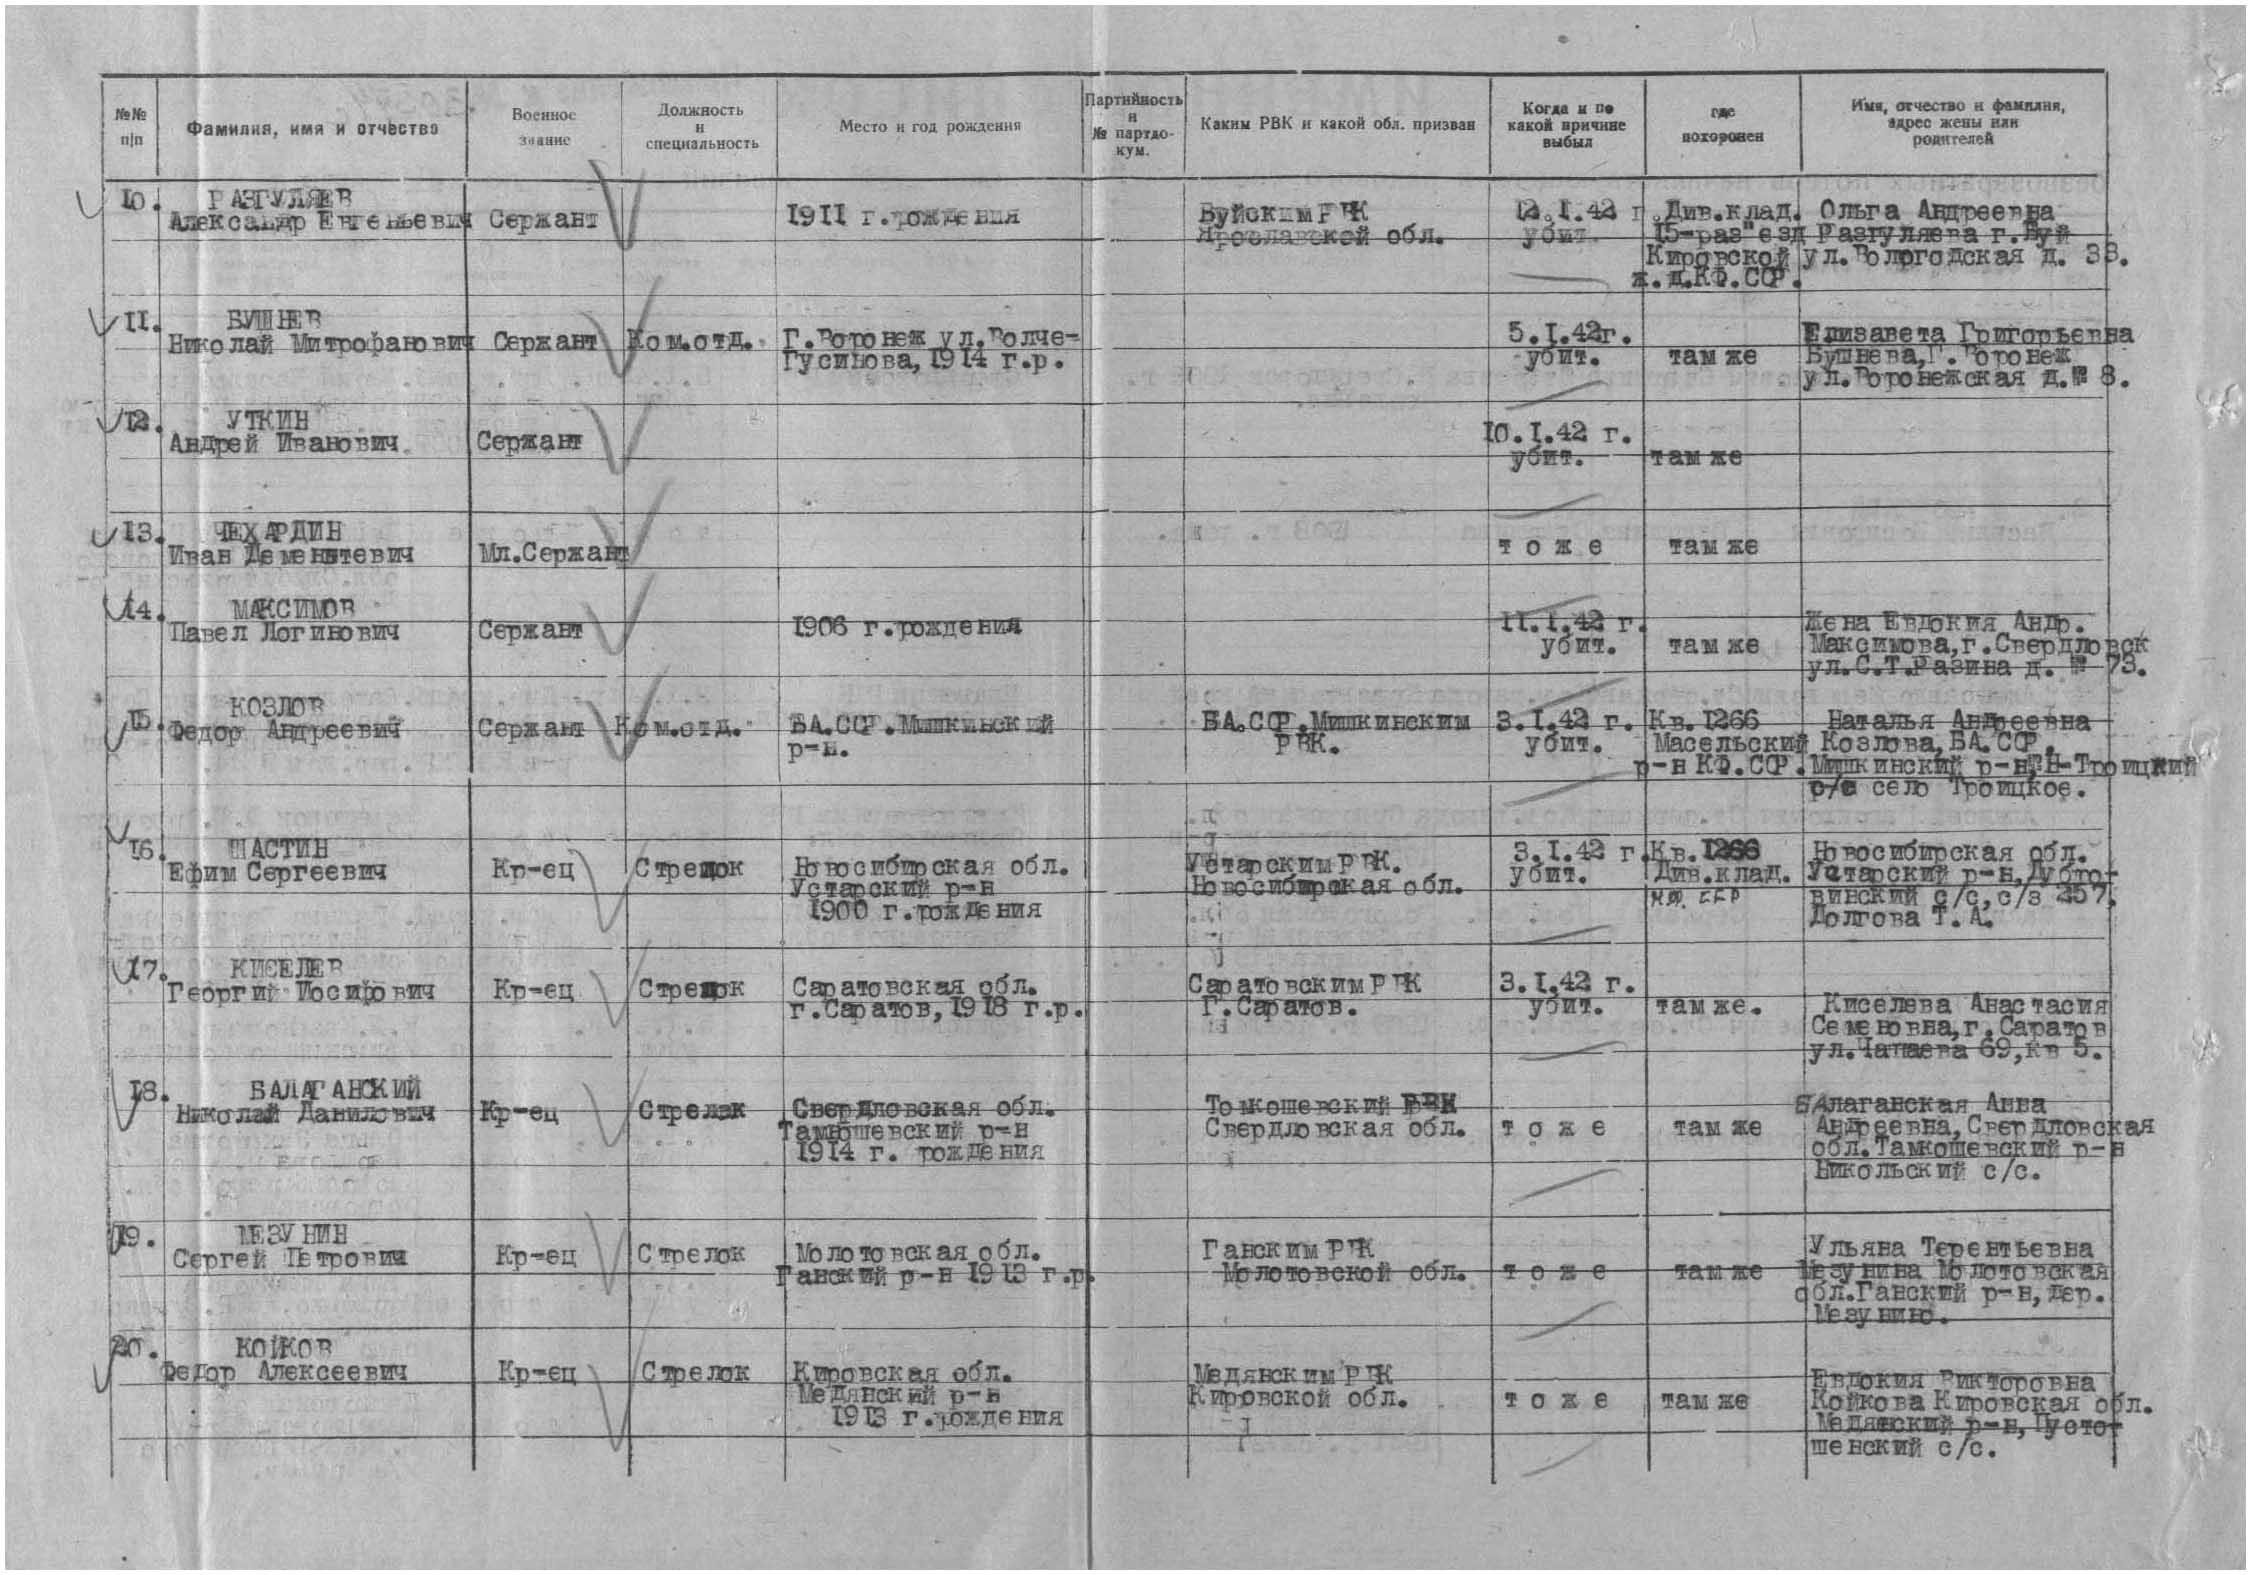 №№ п/п
Фамилия, имя и отчество
Военное звание
Должность и специальность
Место и год рождения
Партийность и № партдо-кум.
Каким РВК и какой обл. призван
Когда и по какой причине выбыл
где похоронен
Имя, отчество и фамилия, адрес жены или родителей
10. РАЗГУЛЯЕВ
Александр Евгеньевич
Сержант
1911 г.рождения
Буйским РВК
Ярославской обл.
12.I.42 г.
убит.
Див.клад.
15-раз"езд
Кировской
ж.д.КФ.ССР.
Ольга Андреевна
Разгуляева г.Буй
ул.Вологодская д. 33.
11. БУШНЕВ
Николай Митрофанович
Сержант
Ком.отд.
Г.Воронеж ул.Волче-
Гусинова, 1914 г.р.
5.I.42г.
убит.
там же
Елизавета Григорьевна
Бушнева, Г.Воронеж
ул.Воронежская д.№ 8.
12. УТКИН
Андрей Иванович
Сержант
10.I.42 г.
убит.
там же
13. ЧЕХАРДИН
Иван Дементьевич
Мл.Сержант
т о ж е
там же
14. МАКСИМОВ
Павел Логинович
Сержант
1906 г.рождения
11.I.42 г.
убит.
там же
Жена Евдокия Андр.
Максимова, г.Свердловск
ул.С.Т.Разина д. № 73.
15. КОЗЛОВ
Федор Андреевич
Сержант
Ком.отд.
БА.ССР.Мишкинский
р-н.
БА.ССР.Мишкинским
РВК.
3.I.42 г.
убит.
Кв. 1266
Масельский
р-н КФ.ССР.
Наталья Андреевна
Козлова, БА.ССР.
Мишкинский р-н, Н-Троицкий
с/с село Троицкое.
16. ШАСТИН
Ефим Сергеевич
Кр-ец
Стрелок
Новосибирская обл.
Устарский р-н
1900 г.рождения
Устарским РВК.
Новосибирская обл.
3.I.42 г.
убит.
Кв. 1266
Див.клад.
КФ. ССР
Новосибирская обл.
Устарский р-н, Дубро-
винский с/с, с/з 257,
Долгова Т.А.
17. КИСЕЛЕВ
Георгий Иосифович
Кр-ец
Стрелок
Саратовская обл.
г.Саратов, 1918 г.р.
Саратовским РВК
Г.Саратов.
3.I.42 г.
убит.
там же.
Киселева Анастасия
Семеновна, г.Саратов
ул.Чапаева 69, кв 5.
18. БАЛАГАНСКИЙ
Николай Данилович
Кр-ец
Стрелок
Свердловская обл.
Тамкошевский р-н
1914 г. рождения
Томкошевский РВК
Свердловская обл.
т о ж е
там же
БАлаганская Анна
Андреевна, Свердловская
обл.Тамкошевский р-н
Никольский с/с.
19. МЕЗУНИН
Сергей Петрович
Кр-ец
Стрелок
Молотовская обл.
Ганский р-н 1913 г.р.
Ганским РВК
Молотовской обл.
т о ж е
там же
Ульяна Терентьевна
Мезунина Молотовская
обл.Ганский р-н, дер.
Мезунино.
20. КОЙКОВ
Федор Алексеевич
Кр-ец
Стрелок
Кировская обл.
Медянский р-н
1913 г.рождения
Медянским РВК
Кировской обл.
т о ж е
там же
Евдокия Викторовна
Койкова Кировская обл.
Медянский р-н, Пусто-
шенский с/с.